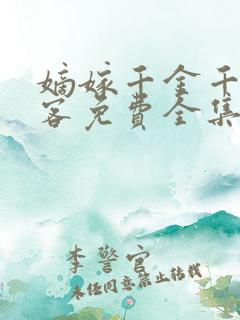 嫡嫁千金千
客免费全集
李警官
未经同意禁止转载